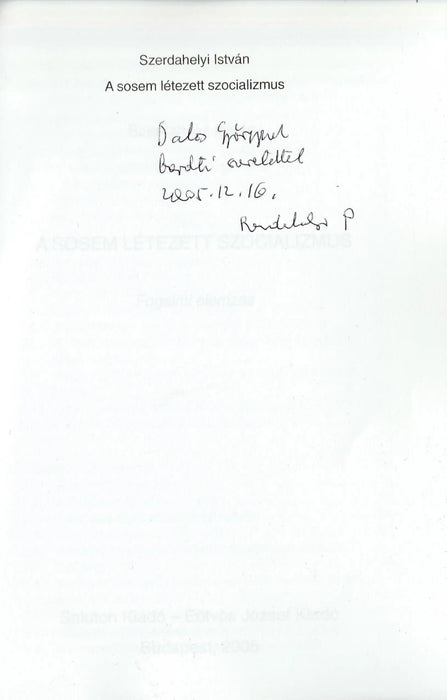 Szerdahelyi István
A sosem létezett szocializmus
Dalos Györgynek
baráti szeretettel
2005.12.16.
A SOSEM LÉTEZETT SZOCIALIZMUS
Fogalmi elemzés
Kiadó – Eötvös József Kiadó
Budapest, 2005